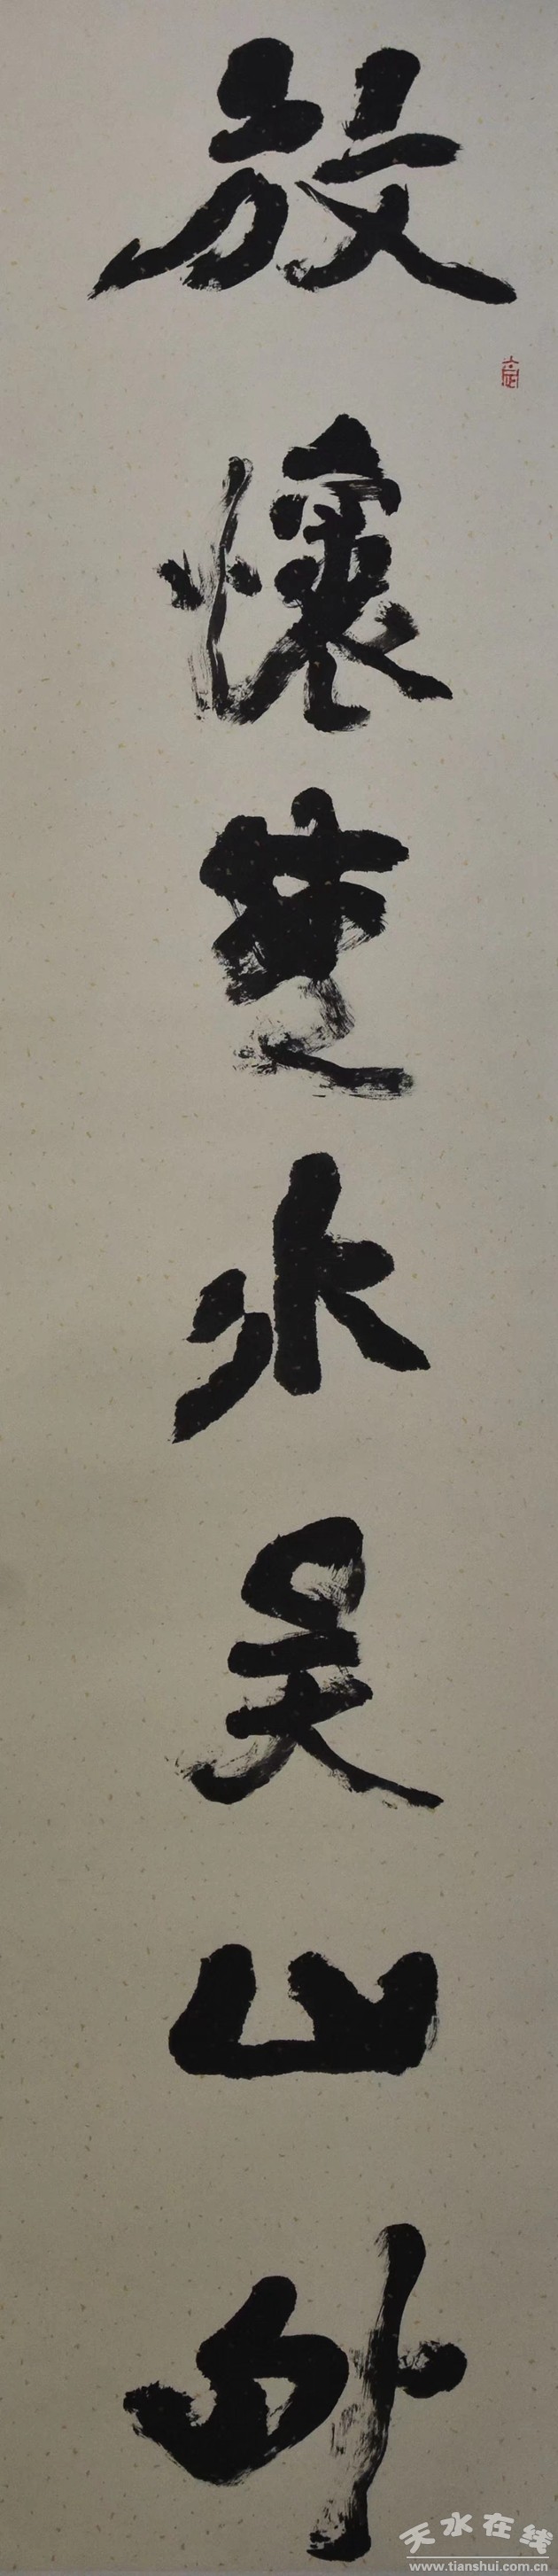 放懷楚水吴山外
天水在线
www.tianshui.com.cn